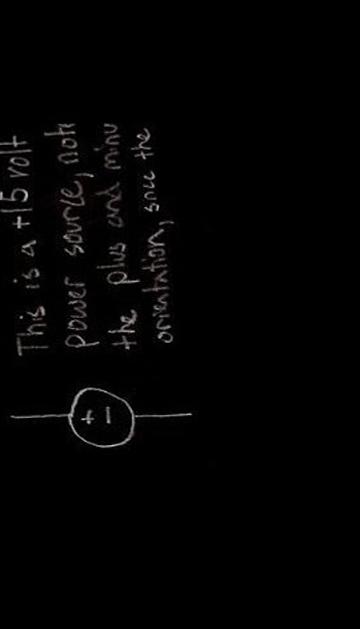 This is a +15 volt
power source, note
the plus and minu
orientation, since the
+ −